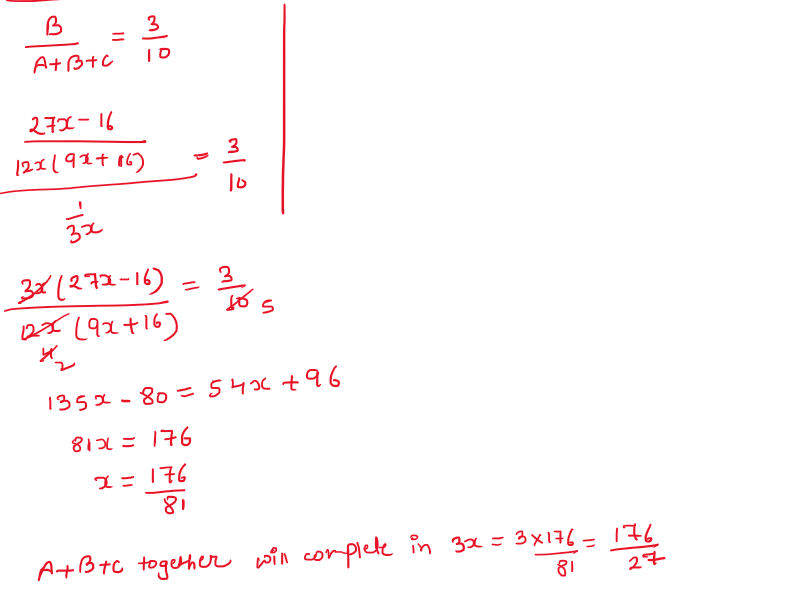 B/(A+B+C) = 3/10
((27x-16)/(12x(9x+16)))/(1/3x) = 3/10
3x(27x-16)/12x(9x+16) = 3/10 5
4 2
135x - 80 = 54x + 96
81x = 176
x = 176/81
A+B+C together will complete in 3x = 3×176/81 = 176/27